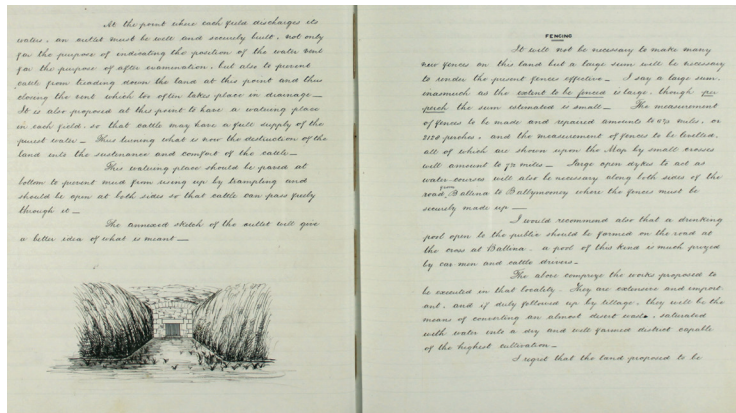 At the point where each field discharges its
water, an outlet must be well and securely built, not only
for the purpose of indicating the position of the water vent
for the purpose of after examination, but also to prevent
cattle from treading down the land at this point and thus
closing the vent which too often takes place in drainage_
It is also proposed at this point to have a watering place
in each field, so that cattle may have a full supply of the
purest water_ Thus turning what is now the destruction of the
land into the sustenance and comfort of the cattle_
This watering place should be paved at
bottom to prevent mud from rising up by trampling and
should be open at both sides so that cattle can pass freely
through it_
The annexed sketch of the outlet will give
a better idea of what is meant_
FENCING
It will not be necessary to make many
new fences on this land but a large sum will be necessary
to render the present fences effective_ I say a large sum,
inasmuch as the extent to be fenced is large, though per
perch the sum estimated is small_ The measurement
of fences to be made and repaired amounts to miles, or
2120 perches, and the measurement of fences to be levelled,
all of which are shewn upon the Map by small crosses
will amount to miles_ Large open dykes to act as
water courses will also be necessary along both sides of the
road from Ballina to Ballymoney where the fences must be
securely made up_
I would recommend also that a drinking
pool open to the public should be formed on the road at
the cross at Ballina, a pool of this kind is much prized
by car men and cattle drivers_
The above comprize the works proposed to
be executed in that locality. They are extensive and import
ant, and if duly followed up by tillage, they will be the
means of converting an almost desert waste, saturated
with water into a dry and well farmed district capable
of the highest cultivation_
I regret that the land proposed to be